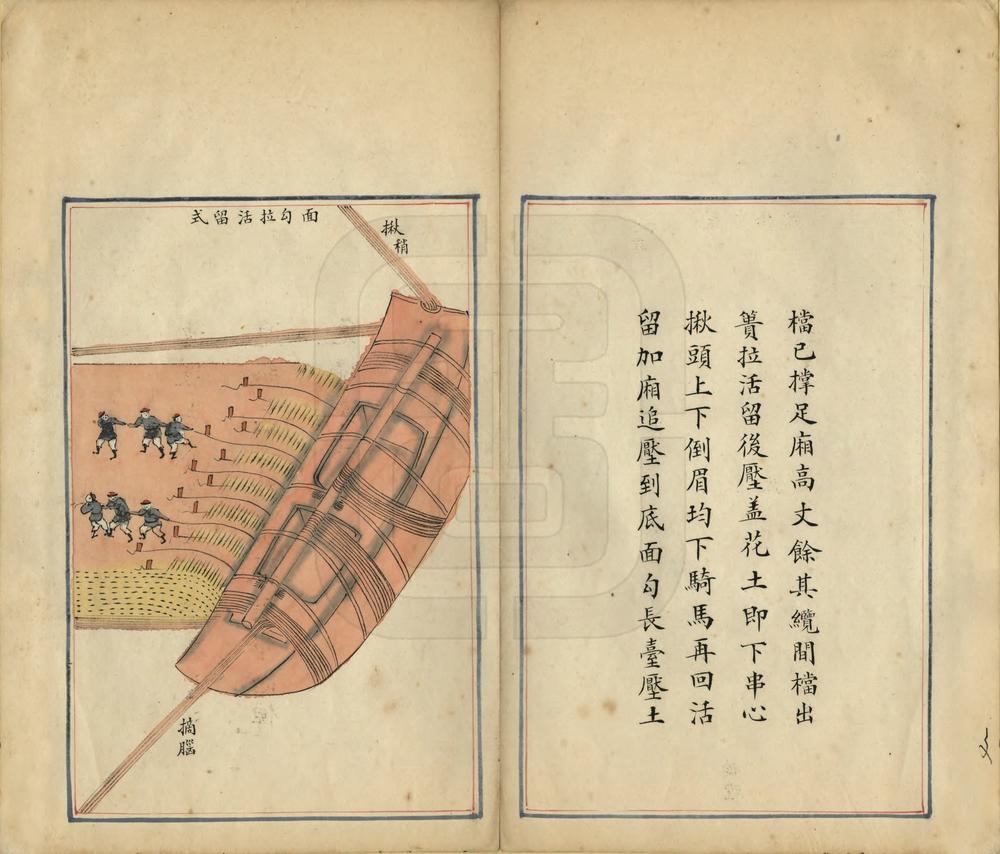 檔已撑足廂高丈餘其纜間檔出
簣拉活留後壓盖花土即下串心
揪頭上下倒眉均下騎馬再回活
留加廂追壓到底面勾長臺壓土
面勾拉活留式
揪稍
摘腦